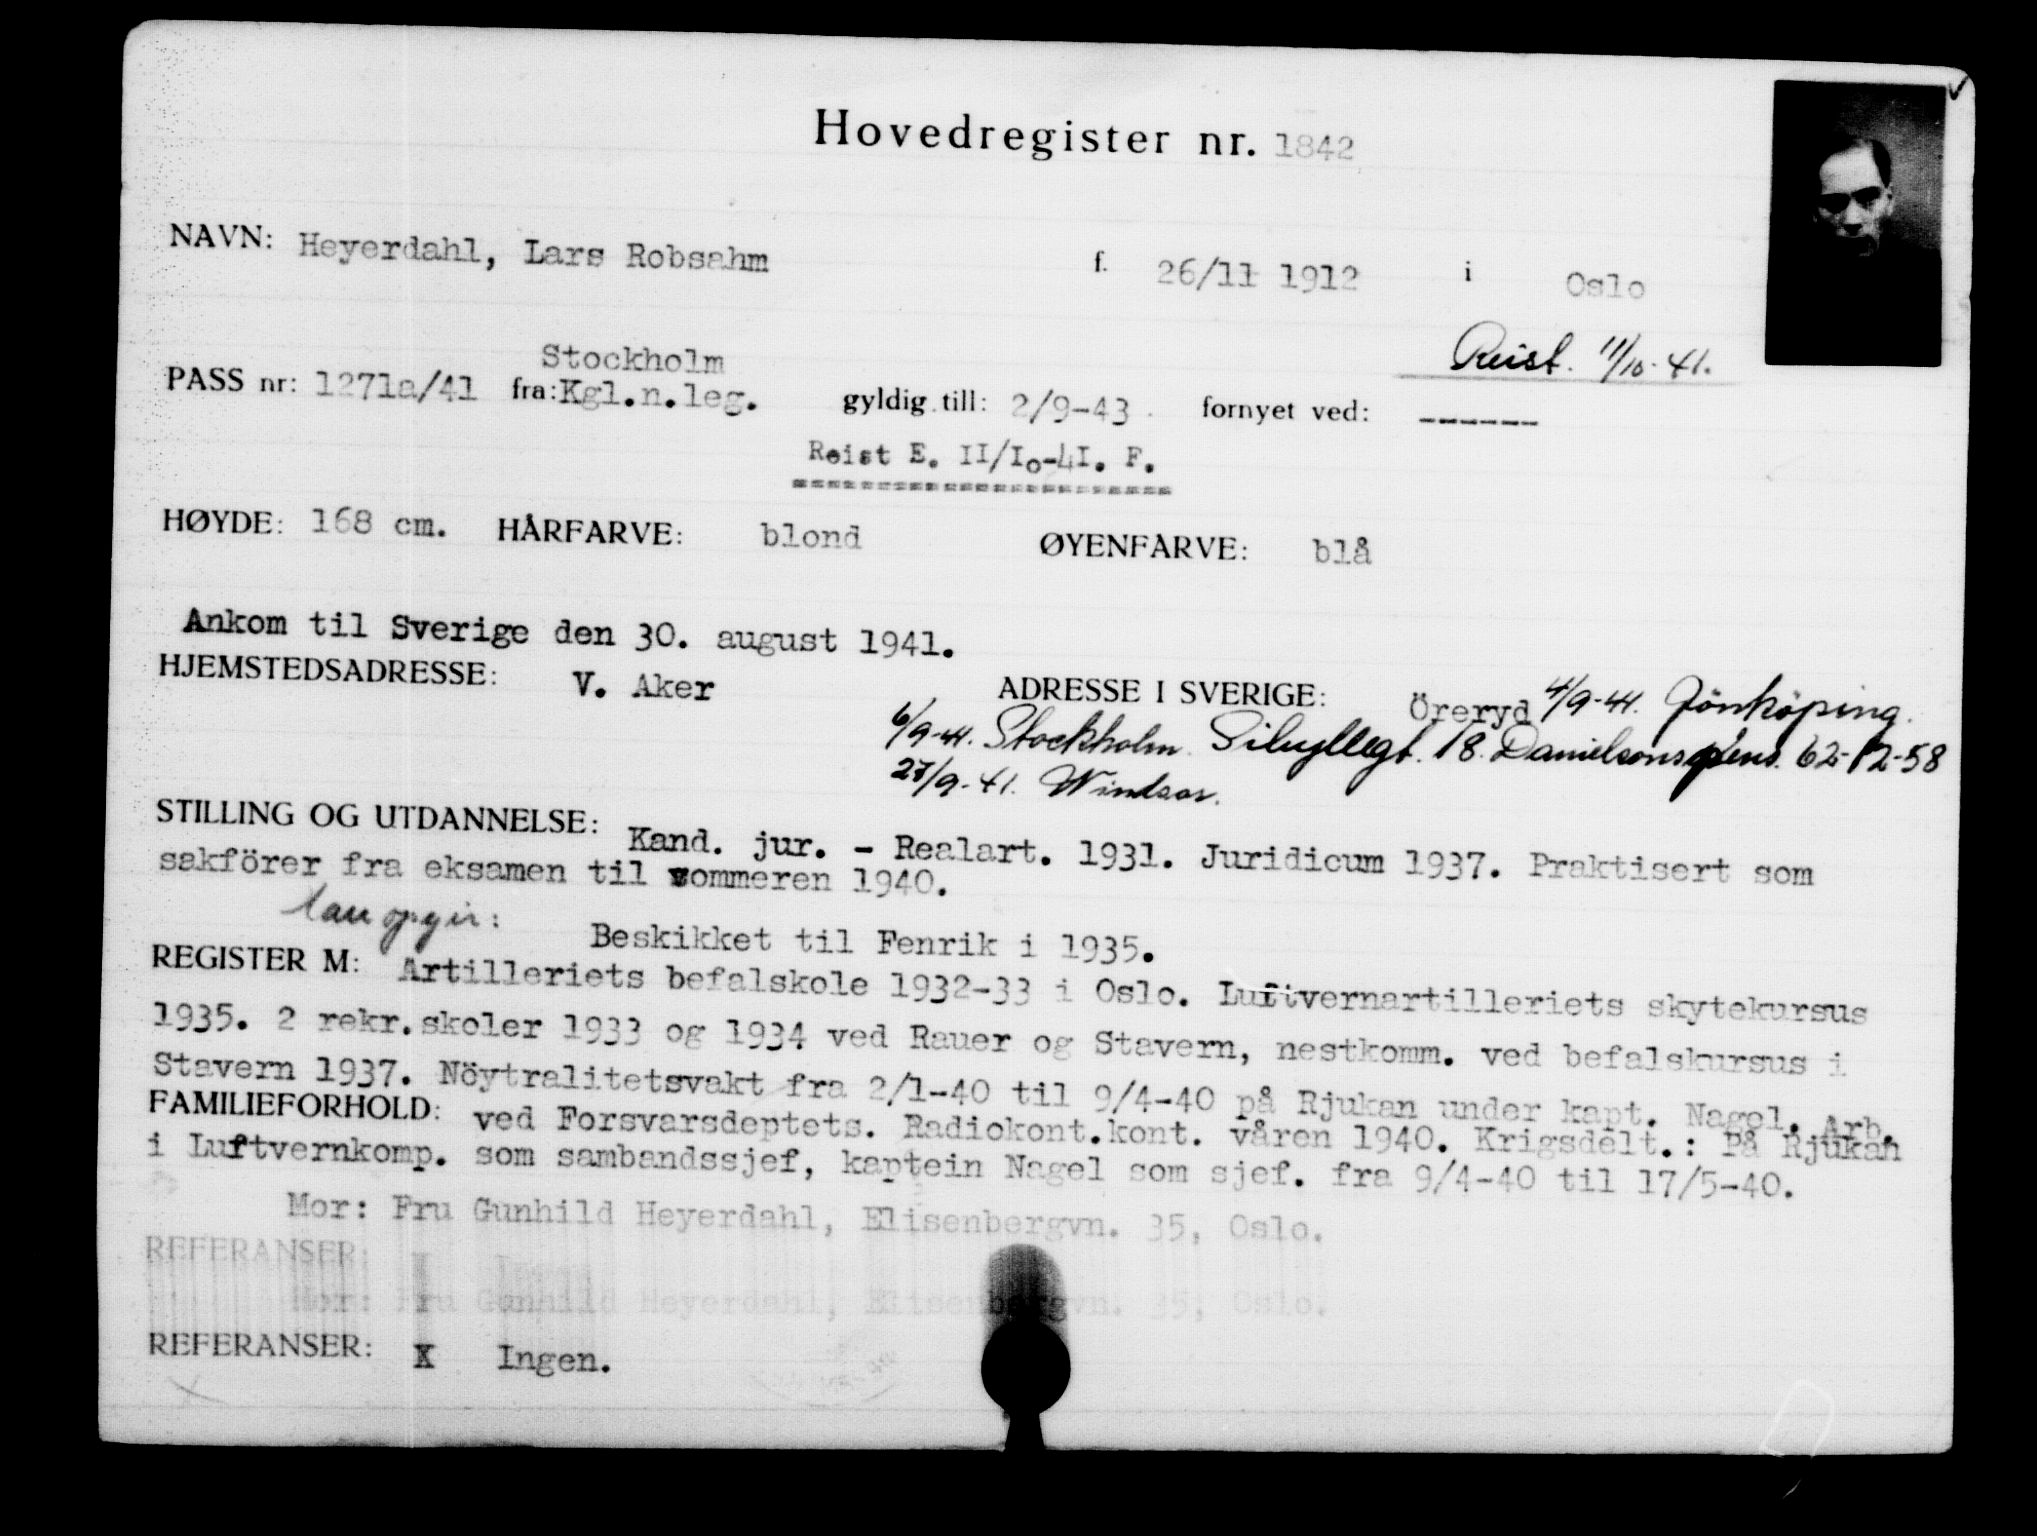 Hovedregister nr. 1842
NAVN: Heyerdahl, Lars Robsahm f. 26/11 1912 i Oslo
Reist. 11/10-41.
Stockholm
PASS nr: 1271a/41 fra: Kgl.n.leg. gyldig till: 2/9-43 fornyet ved: -------
Reist E. II/Io-4I. F.
======================
HØYDE: 168 cm. HÅRFARVE: blond ØYENFARVE: blå
Ankom til Sverige den 30. august 1941.
HJEMSTEDSADRESSE: V. Aker ADRESSE I SVERIGE: Öreryd 4/9-41. Jönköping.
6/9-41. Stockholm. Sibyllegt. 18. Danielsons pens. 62-12-58
27/9-41. Windsor.
STILLING OG UTDANNELSE: Kand. jur. - Realart. 1931. Juridicum 1937. Praktisert som
sakförer fra eksamen til sommeren 1940.
Han opgir: Beskikket til Fenrik i 1935.
REGISTER M: Artilleriets befalskole 1932-33 i Oslo. Luftvernartilleriets skytekursus
1935. 2 rekr.skoler 1933 og 1934 ved Rauer og Stavern, nestkomm. ved befalskursus i
Stavern 1937. Nöytralitetsvakt fra 2/1-40 til 9/4-40 på Rjukan under kapt. Nagel. Arb.
FAMILIEFORHOLD: ved Forsvarsdeptets. Radiokont.kont. våren 1940. Krigsdelt.: På Rjukan
i Luftvernkomp. som sambandssjef, kaptein Nagel som sjef. fra 9/4-40 til 17/5-40.
Mor: Fru Gunhild Heyerdahl, Elisenbergvn. 35, Oslo.
REFERANSER:
Mor: Fru Gunhild Heyerdahl, Elisenbergvn. 35, Oslo.
REFERANSER: X Ingen.